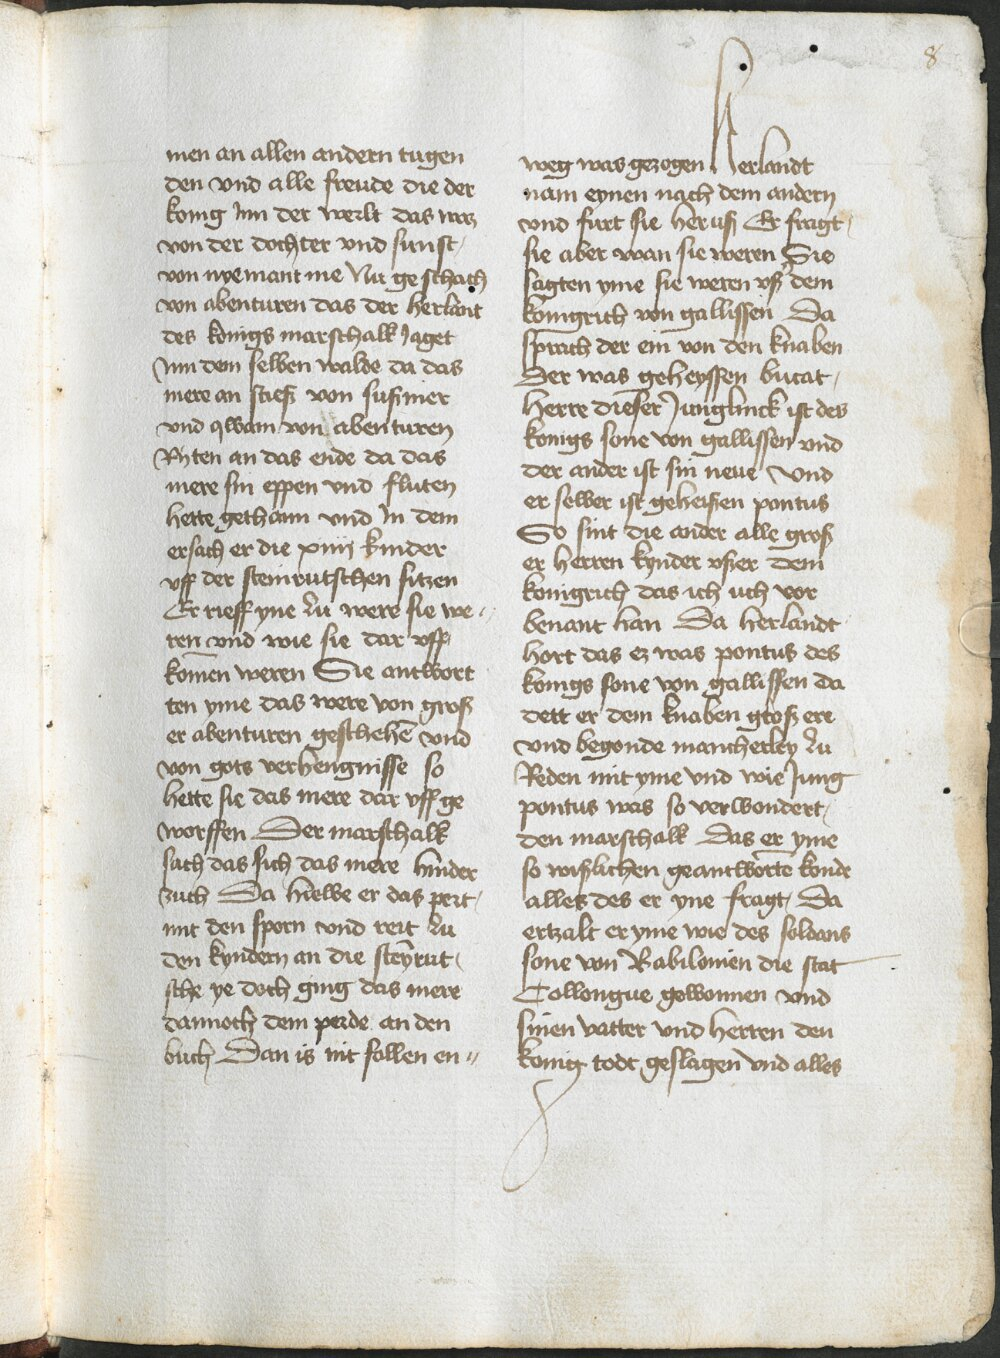 8
men an allen andern tugen
den vnd alle freude die der
konig Inn der werlt das was
von der dochter vnd sunst
von nyemant me Nu geschach
von abenturen das der herlant
des konigs marschalk Jaget
Inn dem selben walde da das
mere an stieß von sußiner
vnd qwam von abenturen
Ryten an das ende da das
mere sin eppen vnd fluten
hette gethain vnd In dem
ersach er die xiiij kinder
vff der steinrutschen sitzen
Er rieff yne zu were sie we
ren vnd wie sie dar vff
komen weren Sie antwort
ten yme das were von groß
er abenturen geschehē vnd
von gots verhengnisse so
hette sie das mere dar vff ge
worffen Der marschalk
sach das sich das mere hinder
zuch Da hiewe er das pert
mit den sporn vnd reit zu
den kyndern an die steynrut
sche ye doch ging das mere
dannoch dem perde an den
buch Dan is nit follen en
weg was gezogen Herlandt
nam eynen nach dem andern
vnd furt sie heruß Er fragt
sie aber wan sie weren Sie
sagten yme sie weren vß dem
konigrich von gallissen Da
sprach der ein von den knaben
Der was geheyssen bucat
Herre dieser Junglinck ist des
konigs sone von gallissen vnd
der ander ist sin neue Vnd
er selber ist geheißen pontus
So sint die ander alle groß
er herren kynder vßer dem
konigrich das ich uch vor
benant han Da herlandt
hort das ez was pontus des
konigs sone von gallissen da
dett er dem knaben groß ere
vnd begonde mancherley zu
Reden mit yme vnd wie Jung
pontus was so verwondert
den marschalk Das er yme
so wißlichen geantworte konde
alles des er yne fragt Da
ertzalt er yme wie des soldans
sone von Babilonien die stat
Collongue gewonnen vnd
sinen vatter vnd herren den
konig todt geslagen vnd alles